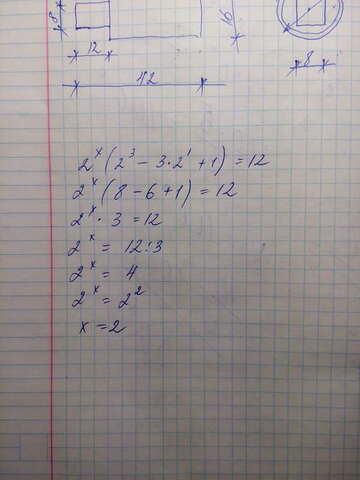 12
42
8
2^x (2^3 - 3·2^1 + 1) = 12
2^x (8 - 6 + 1) = 12
2^x · 3 = 12
2^x = 12:3
2^x = 4
2^x = 2^2
x = 2